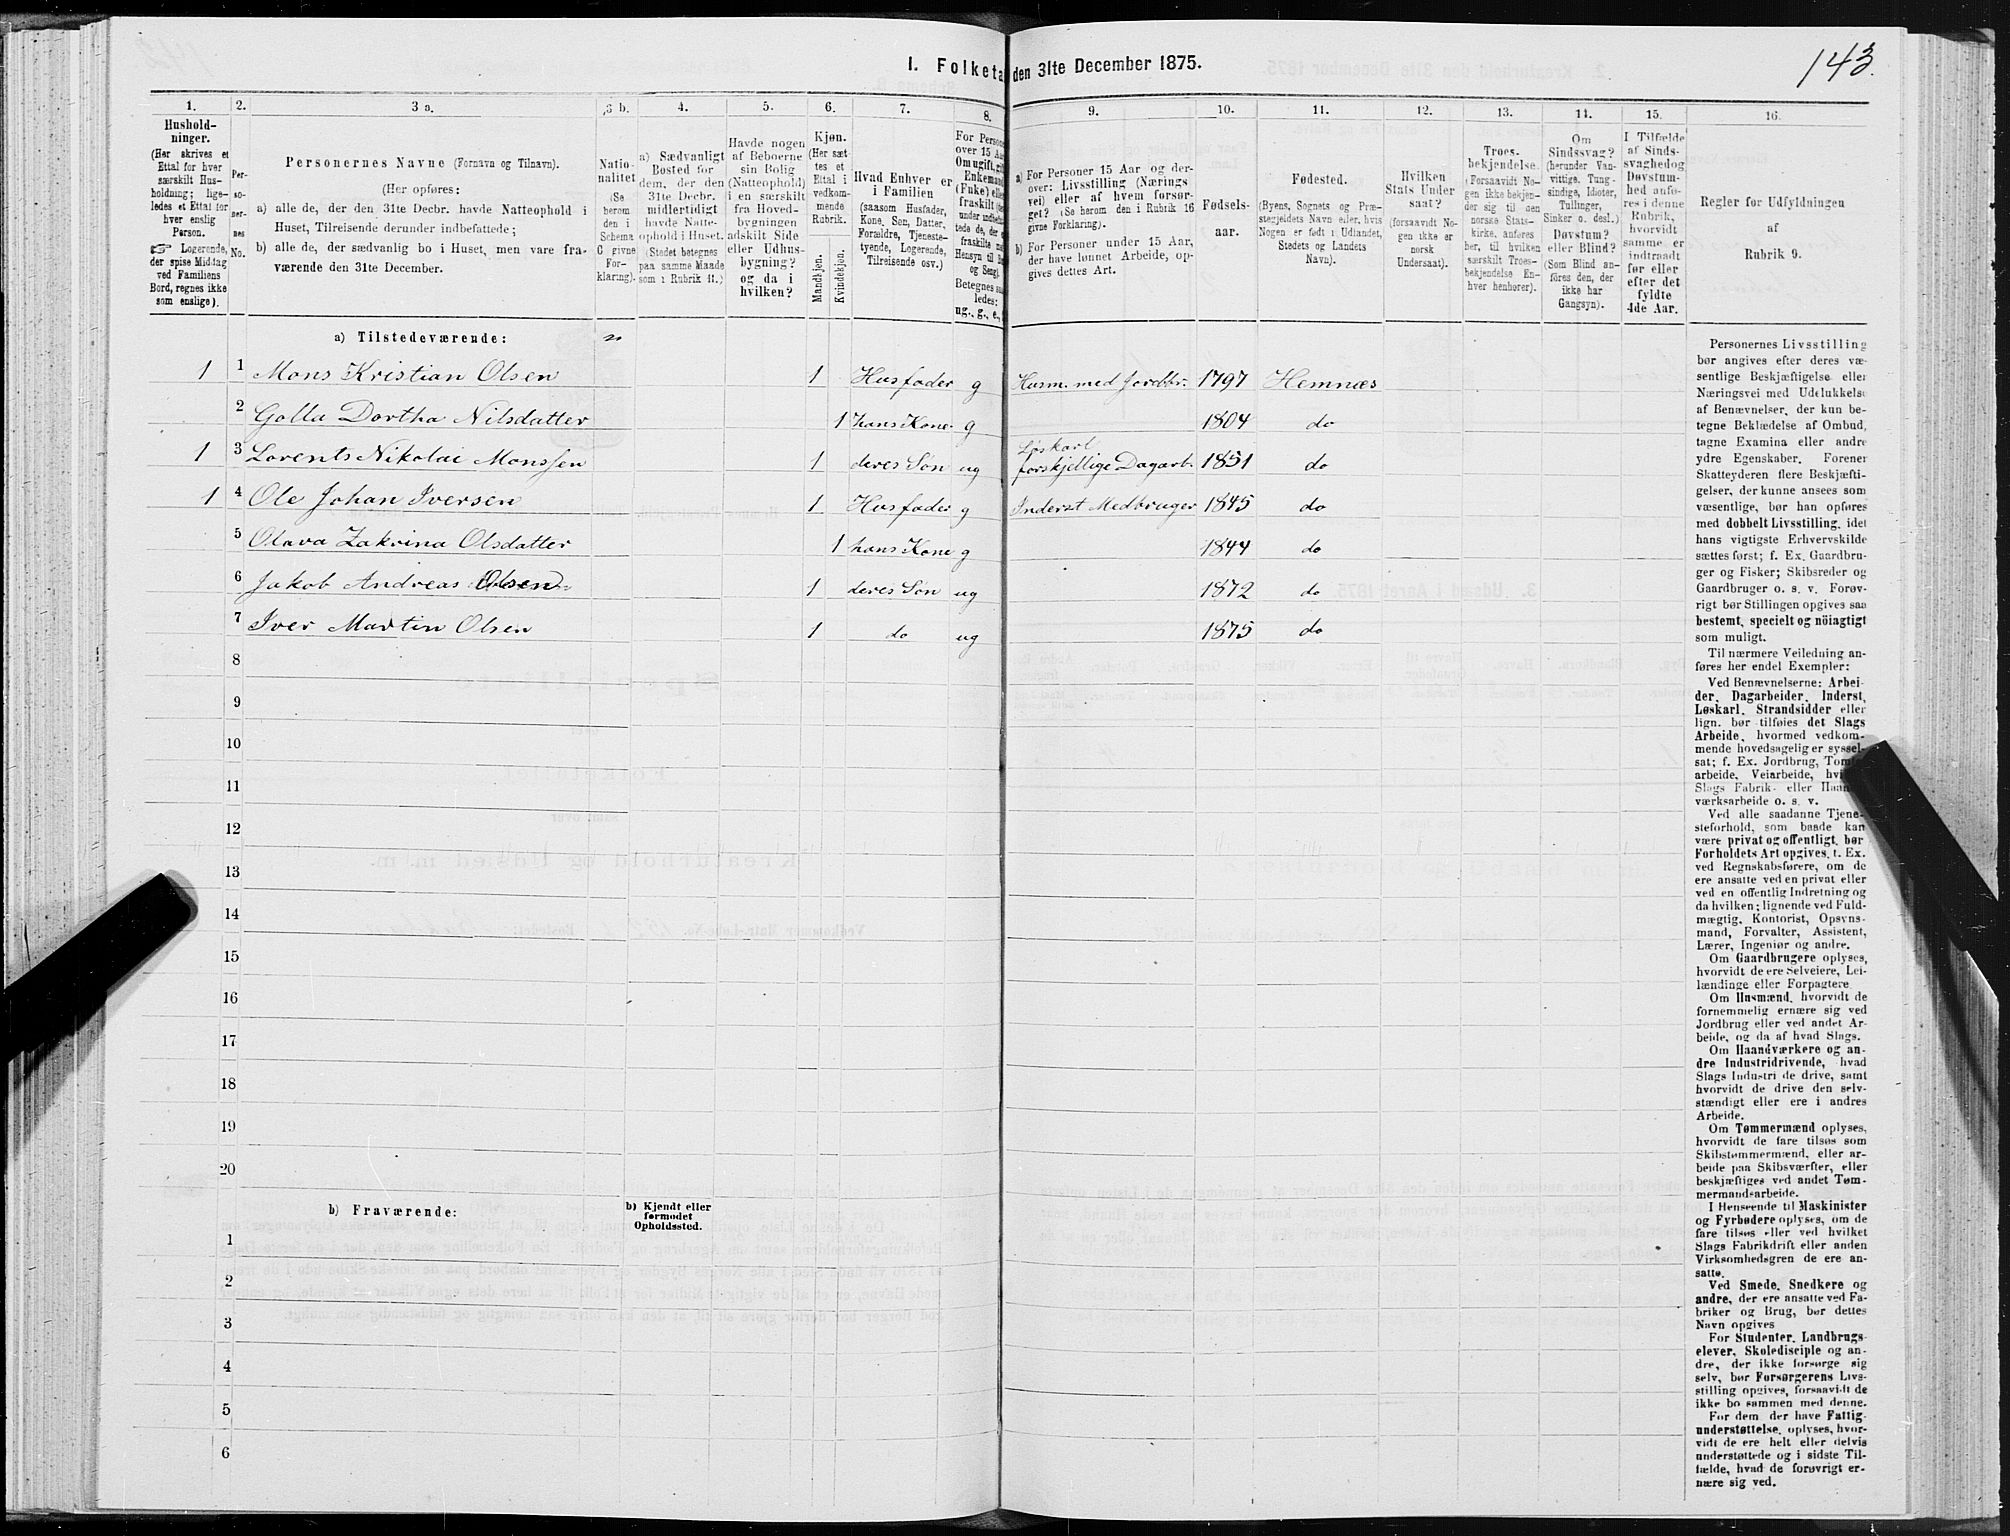 143.
I. Folketa den 31te December 1875.
1. 2. 3 a. 3 b. 4. 5. 6. 7. 8. 9. 10. 11. 12. 13. 14. 15. 16.
Hushold-
ninger.
(Her skrives et
Ettal for hver
særskilt Hus-
holdning; lige-
ledes et Ettal for
hver enslig
Person.
☞ Logerende,
der spise Middag
ved Familiens
Bord, regnes ikke
som enslige).
Per-
so-
ner-
nes
No.
Personernes Navne (Fornavn og Tilnavn).
(Her opføres:
a) alle de, der den 31te Decbr. havde Natteophold i
Huset, Tilreisende derunder indbefattede;
b) alle de, der sædvanlig bo i Huset, men vare fra-
værende den 31te December.
Natio-
nalitet
(Se
herom
den i
Schema
6 givne
For-
klaring).
a) Sædvanligt
Bosted for
dem, der den
31te Decbr.
midlertidigt
havde Natte-
ophold i Huset.
(Stedet betegnes
paa samme Maade
som i Rubrik 11.)
Havde nogen
af Beboerne
sin Bolig
(Natteophold)
i en særskilt
fra Hoved-
bygningen
adskilt Side
eller Udhus-
bygning?
og da i
hvilken?
Kjøn.
(Her sæt-
tes et
Ettal i
vedkom-
mende
Rubrik.
Mandkjøn.
Kvindekjøn.
Hvad Enhver er
i Familien
(saasom Husfader,
Kone, Søn, Datter,
Forældre, Tjeneste-
tyende, Logerende,
Tilreisende osv.)
For Person
over 15 Aa
Om ugift, gif
Enkeman
(Enke) elle
fraskilt (se
under indbefat-
tede de, der e
fraskilte me
Hensyn til B
og Seng).
Betegnes saa
ledes:
ug., g., e.,
a) For Personer 15 Aar og der-
over: Livsstilling (Nærings
vei) eller af hvem forsør-
get? (Se herom i Rubrik 16
givne Forklaring).
b) For Personer under 15 Aar,
der have lønnet Arbeide, op-
gives dettes Art.
Fødsels-
aar.
Fødested.
(Byens, Sognets og Præ-
stegjeldets Navn eller, hvis
Nogen er født i Udlandet,
Stedets og Landets
Navn).
Hvilken
Stats Under
saat?
(forsaavidt No-
gen ikke er
norsk
Undersaat).
Troes-
bekjendelse.
(Forsaavidt No-
gen ikke bekjen-
der sig til den
norske Stats-
kirke, anføres
her, til hvilken
særskilt Troes-
bekjendelse En-
hver henhører).
Om
Sindssvag?
(herunder Van-
vittige, Tung-
sindige, Idioter,
Tullinger,
Sinker o. desl.)
Døvstum?
eller Blind?
(Som Blind an-
føres den, der
ikke har
Gangsyn).
I Tilfælde
af Sinds-
svaghed og
Døvstum-
hed anfø-
res i denne
Rubrik,
hvorvidt
samme er
indtraadt
før eller
efter det
fyldte
4de Aar.
Regler for Udfyldningen
af
Rubrik 9.
a) Tilstedeværende: n
1 1 Mons Kristian Olsen 1 Husfader g Husm. med Jordbr. 1797 Hemnæs
2 Golla Dortha Nilsdatter 1 hans Kone g 1804 do
1 3 Lorents Nikolai Monssen 1 deres Søn ug Løskarl forskjellige Dagarb. 1851 do
1 4 Ole Johan Iversen 1 Husfader g Inderst Medbruger 1845 do
5 Olava Zakrina Olsdatter 1 hans Kone g 1844 do
6 Jakob Andreas Olsen 1 deres Søn ug 1872 do
7 Iver Martin Olsen 1 do ug 1875 do
8
9
10
11
12
13
14
15
16
17
18
19
20
b) Fraværende:
b) Kjendt eller
formodet
Opholdssted.
1
2
3
4
5
6
Personernes Livsstilling
bør angives efter deres væ-
sentlige Beskjæftigelse eller
Næringsvei med Udelukkelse
af Benævnelser, der kun be-
tegne Beklædelse af Ombud,
tagne Examina eller andre
ydre Egenskaber. Forener
Skatteyderen flere Beskjæfti-
gelser, der kunne ansees som
væsentlige, bør han opføres
med dobbelt Livsstilling, idet
hans vigtigste Erhvervskilde
sættes først; f. Ex. Gaardbru-
ger og Fisker; Skibsreder og
Gaardbruger o. s. v. Forøv-
rigt bør Stillingen opgives saa
bestemt, specielt og nöiagtigt
som muligt.
Til nærmere Veiledning an-
føres her endel Exempler:
Ved Benævnelserne: Arbei-
der, Dagarbeider, Inderst,
Løskarl, Strandsidder eller
lign. bør tilføies det Slags
Arbeide, hvormed vedkom-
mende hovedsagelig er syssel-
sat; f. Ex. Jordbrug, Tom
arbeide, Veiarbeide, hv
Slags Fabrik- eller Haan
værksarbeide o. s. v.
Ved alle saadanne Tjene-
steforhold, som baade kan
være privat og offentligt, bør
Forholdets Art opgives, t. Ex.
ved Regnskabsførere, om de
ere ansatte ved en privat eller
ved en offentlig Indretning og
da hvilken; lignende ved Fuld-
mægtig, Kontorist, Opsyns-
mand, Forvalter, Assistent,
Lærer, Ingeniør og andre.
Om Gaardbrugere oplyses,
hvorvidt de ere Selveiere, Lei-
lændinge eller Forpagtere
Om Husmænd, hvorvidt de
fornemmelig ernære sig ved
Jordbrug eller ved andet Ar-
beide, og da af hvad Slags.
Om Haandværkere og an-
dre Industridrivende, hvad
Slags Industri de drive, samt
hvorvidt de drive den selv-
stændigt eller ere i andres
Arbeide.
Om Tømmermænd oplyses,
hvorvidt de fare tilsøs som
Skibstømmermænd, eller ar-
beide paa Skibsværfter, eller
beskjæftiges ved andet Tøm-
mermandsarbeide.
I Henseende til Maskinister
og Fyrbødere oplyses, om de
fare tilsøs eller ved hvilket
Slags Fabrikdrift eller anden
Virksomhedsgren de ere an-
satte.
Ved Smede, Snedkere og
andre, der ere ansatte ved Fa-
briker og Brug, bør dettes
Navn opgives
For Studenter, Landbrugs-
elever, Skoledisciple og an-
dre, der ikke forsørge sig
selv, bør Forsørgerens Livs-
stilling opgives, forsaavidt de
ikke bo sammen med denne.
For dem, der have Fattig-
understøttelse, oplyses, hvor-
vidt de ere helt eller delvis
understøttede og i sidste Til-
fælde, hvad de forøvrigt er-
nære sig ved.